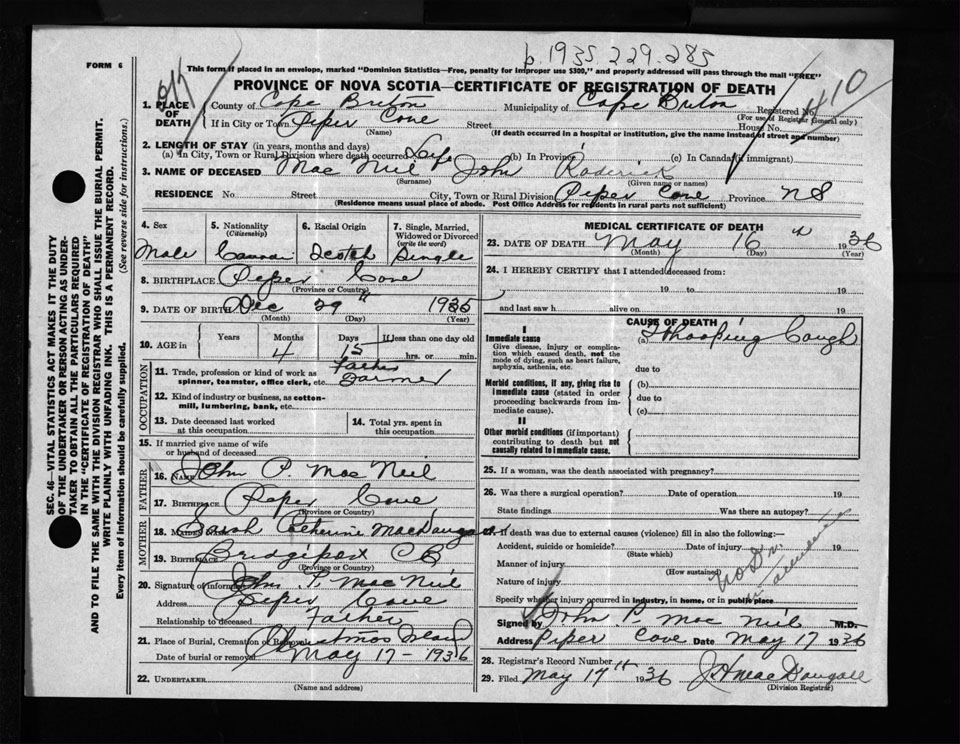 b. 1935-229-285
FORM 6
This form if placed in an envelope, marked "Dominion Statistics—Free, penalty for improper use $300," and properly addressed will pass through the mail "FREE"
PROVINCE OF NOVA SCOTIA—CERTIFICATE OF REGISTRATION OF DEATH
1. PLACE OF DEATH
County of Cape Breton Municipality of Cape Breton Registered No.
(For use of Registrar General only)
If in City or Town Piper Cove Street House No.
(Name) (If death occurred in a hospital or institution, give the name instead of street and number)
2. LENGTH OF STAY (in years, months and days)
(a) In City, Town or Rural Division where death occurred Life (b) In Province (c) In Canada (if immigrant)
3. NAME OF DECEASED Mac Neil John Roderick
(Surname) (Given name or names)
RESIDENCE No. Street City, Town or Rural Division Piper Cove Province NS
(Residence means usual place of abode. Post Office Address for residents in rural parts not sufficient)
4. Sex
Male
5. Nationality
(Citizenship)
6. Racial Origin
Scotch
7. Single, Married, Widowed or Divorced
(write the word)
Single
8. BIRTHPLACE Piper Cove
(Province or Country)
9. DATE OF BIRTH Dec 29" 1935
(Month) (Day) (Year)
10. AGE in
Years Months Days If less than one day old
4 15 hrs. or min.
OCCUPATION
11. Trade, profession or kind of work as spinner, teamster, office clerk, etc. Father Farmer
12. Kind of industry or business, as cotton-mill, lumbering, bank, etc.
13. Date deceased last worked at this occupation
14. Total yrs. spent in this occupation
15. If married give name of wife or husband of deceased
FATHER
16. NAME John P. Mac Neil
17. BIRTHPLACE Piper Cove
(Province or Country)
MOTHER
18. MAIDEN NAME Sarah Catherine MacDougall
19. BIRTHPLACE Bridgeport CB
(Province or Country)
20. Signature of informant John P. Mac Neil
Address Piper Cove
Relationship to deceased Father
21. Place of Burial, Cremation or Removal Christmas Island
Date of burial or removal May 17 - 1936
22. UNDERTAKER
(Name and address)
MEDICAL CERTIFICATE OF DEATH
23. DATE OF DEATH May 16" 1936
(Month) (Day) (Year)
24. I HEREBY CERTIFY that I attended deceased from:
19 to 19
and last saw h alive on 19
CAUSE OF DEATH
I
Immediate cause
Give disease, injury or complication which caused death, not the mode of dying, such as heart failure, asphyxia, asthenia, etc.
(a) Whooping Cough
due to
Morbid conditions, if any, giving rise to immediate cause (stated in order proceeding backwards from immediate cause).
(b)
due to
(c)
II
Other morbid conditions (if important) contributing to death but not causally related to immediate cause.
25. If a woman, was the death associated with pregnancy?
26. Was there a surgical operation? Date of operation 19
State findings Was there an autopsy?
27. If death was due to external causes (violence) fill in also the following:—
Accident, suicide or homicide? Date of injury 19
(State which)
Manner of injury
(How sustained)
Nature of injury
Specify whether injury occurred in industry, in home, or in public place
No Dr in attendance
Signed by John P. Mac Neil M.D.
Address Piper Cove Date May 17 1936
28. Registrar's Record Number
29. Filed May 17" 1936 J H MacDougall
(Division Registrar)
SEC. 46—VITAL STATISTICS ACT MAKES IT THE DUTY
OF THE UNDERTAKER OR PERSON ACTING AS UNDER-
TAKER TO OBTAIN ALL THE PARTICULARS REQUIRED
IN THE "CERTIFICATE OF REGISTRATION OF DEATH"
AND TO FILE THE SAME WITH THE DIVISION REGISTRAR WHO SHALL ISSUE THE BURIAL PERMIT.
WRITE PLAINLY WITH UNFADING INK. THIS IS A PERMANENT RECORD.
Every item of information should be carefully supplied. (See reverse side for instructions.)